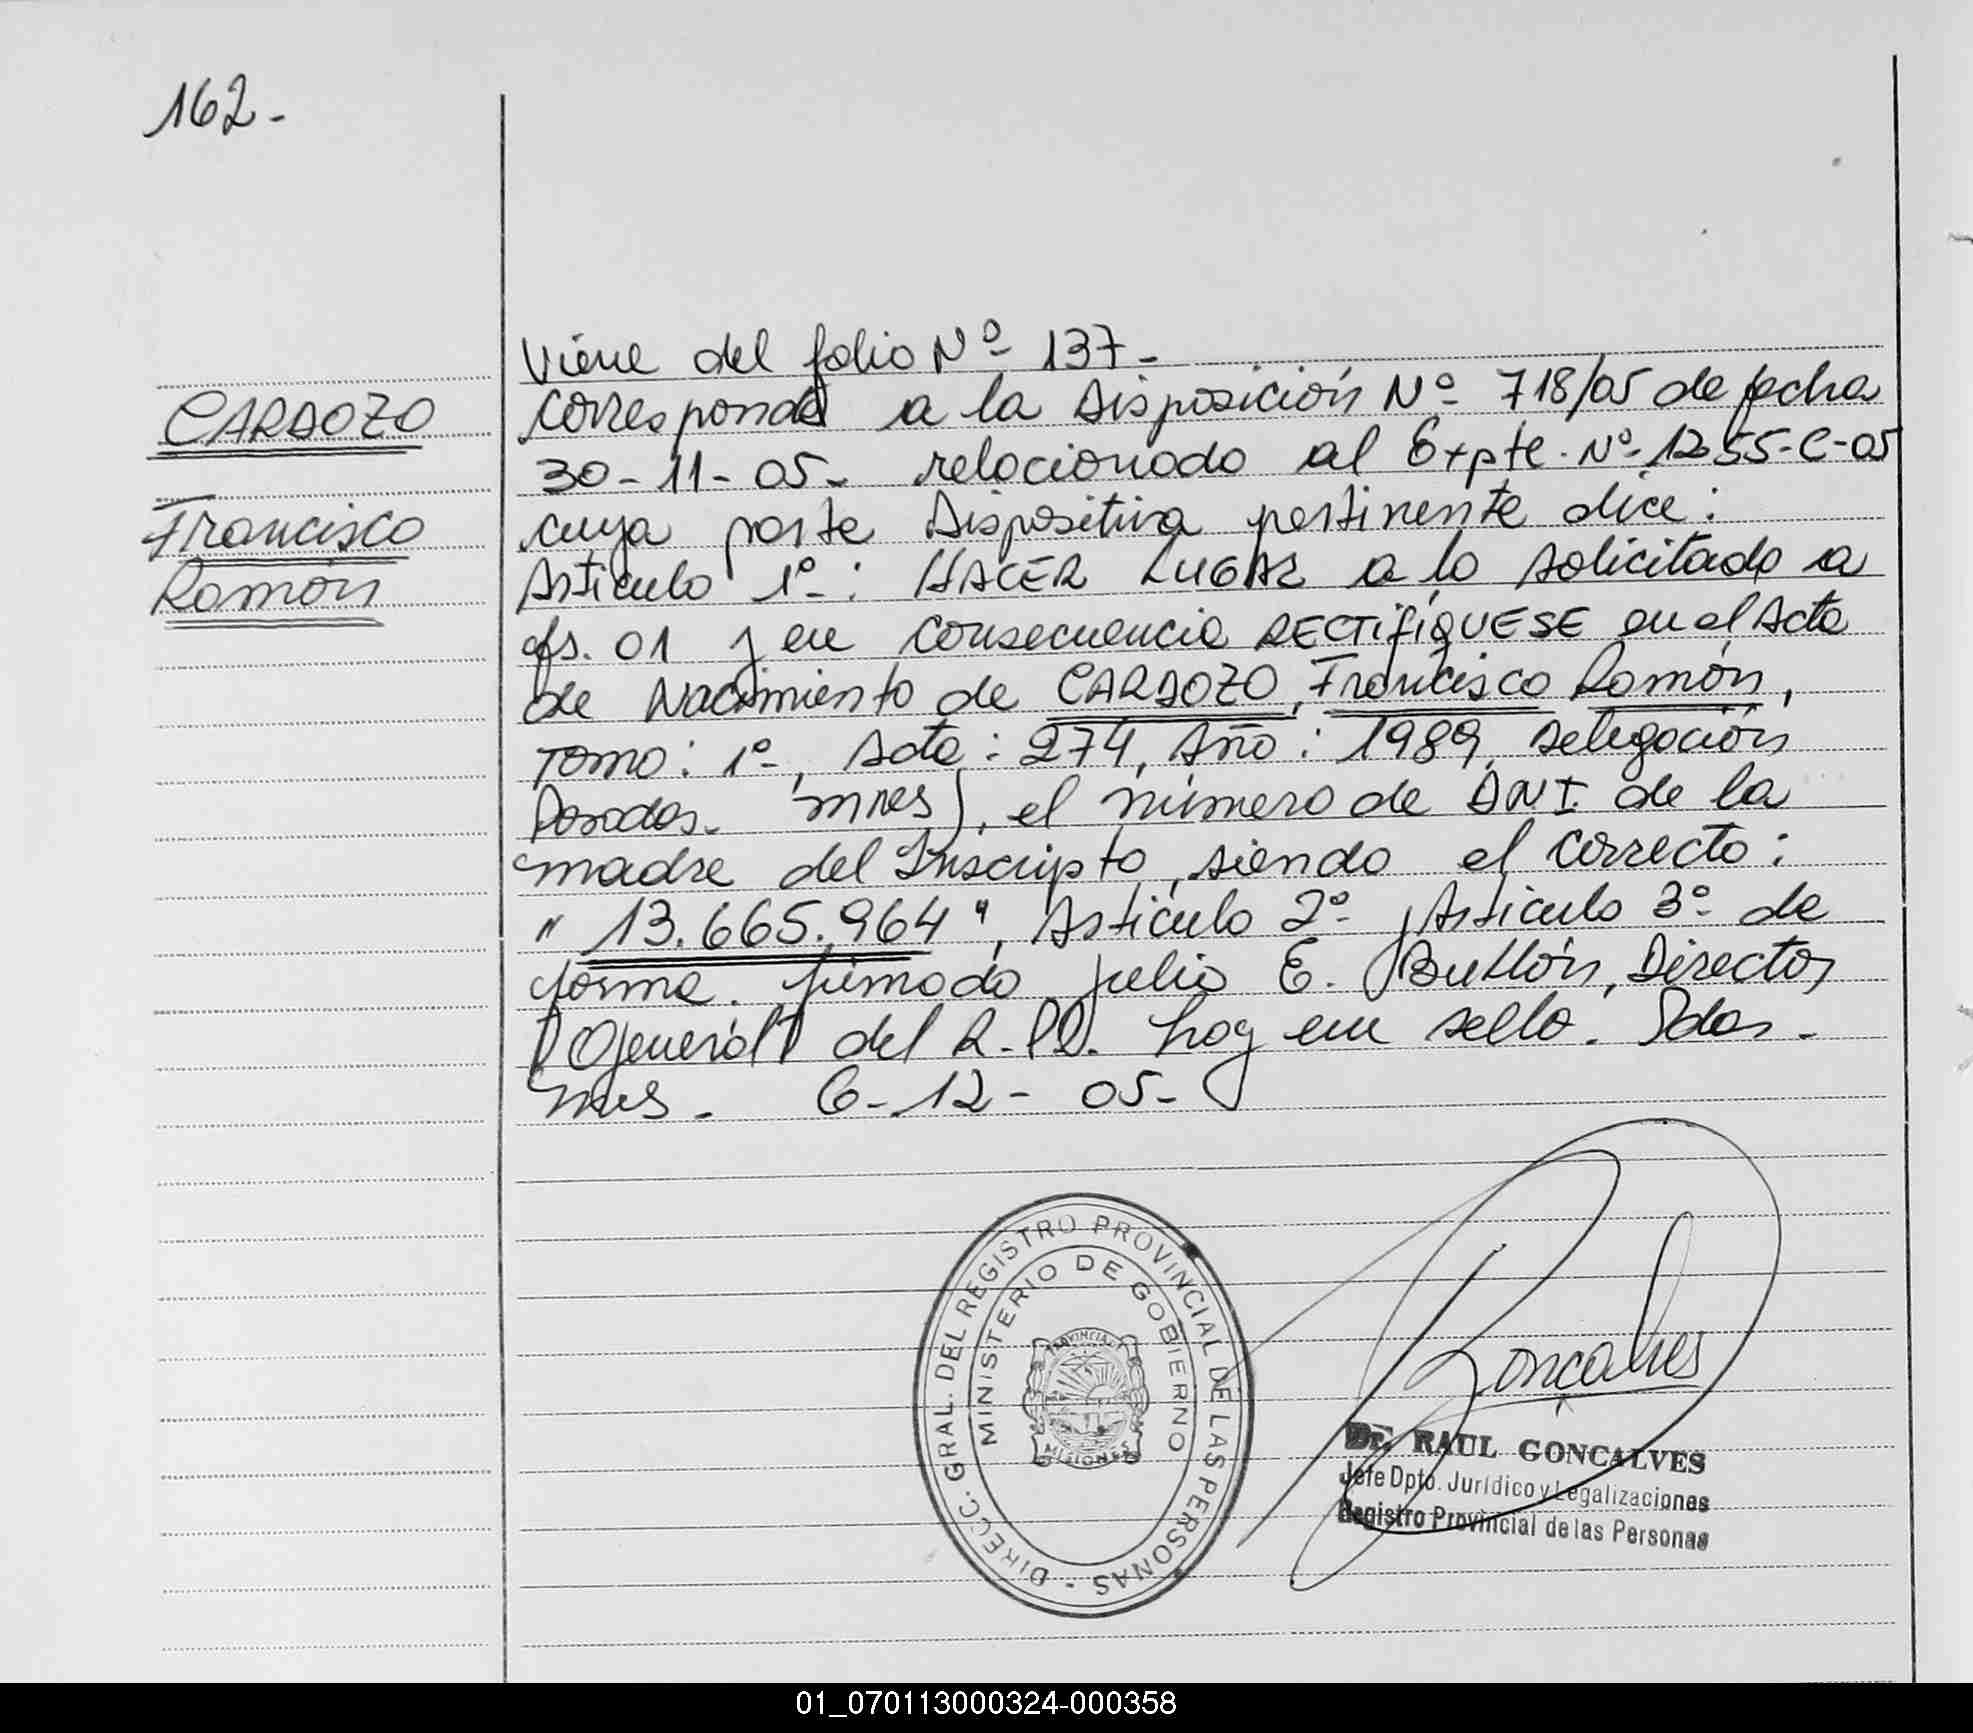 162-
Viene del folio Nº 137-
CARDOZO
Francisco
Ramón
Corresponde a la Disposición Nº 718/05 de fecha
30-11-05- relacionado al Expte. Nº 1255-C-05
cuya parte Dispositiva pertinente dice:
Articulo 1º: HACER LUGAR a lo solicitado a
fs. 01 y en consecuencia RECTIFIQUESE en el Acta
de Nacimiento de CARDOZO, Francisco Ramón,
Tomo: 1º, Acta: 274, Año: 1989, Delegación
Posadas- Mnes), el número de DNI. de la
madre del Inscripto, siendo el correcto:
"13.665.964", Articulo 2º Articulo 3º de
forma. firmado Julio E. Director
General del R.PP. hay un sello. Pdas-
Mnes- 6-12-05-
DIRECC. GRAL. DEL REGISTRO PROVINCIAL DE LAS PERSONAS -
MINISTERIO DE GOBIERNO
PROVINCIA
MISIONES
Goncalves
Dr. RAUL GONCALVES
Jefe Dpto. Jurídico y Legalizaciones
Registro Provincial de las Personas
01_070113000324-000358